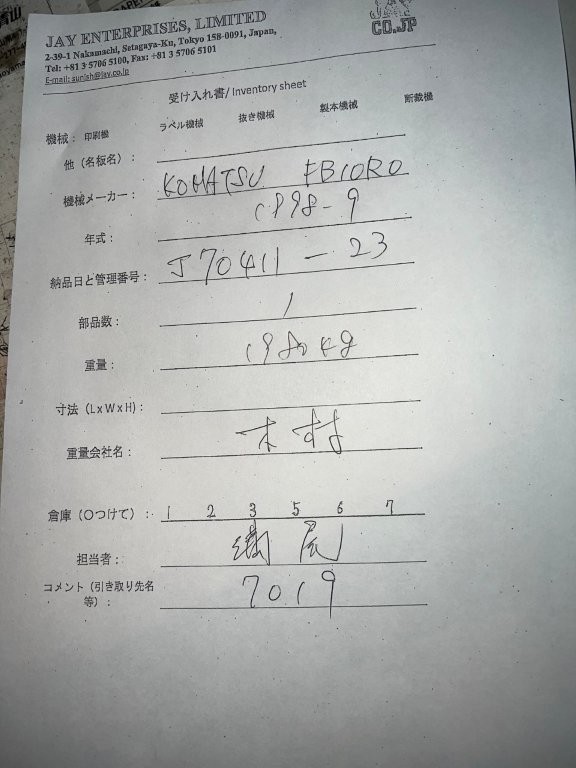 JAY ENTERPRISES, LIMITED
2-39-1 Nakamachi, Setagaya-Ku, Tokyo 158-0091, Japan,
Tel: +81 3 5706 5100, Fax: +81 3 5706 5101
E-mail: sunish@jay.co.jp
CO.JP
受け入れ書/ Inventory sheet
機械: 印刷機 ラベル機械 抜き機械 製本機械 断裁機
他（名板名）:
機械メーカー: KOMATSU FB10RO
年式: 1998-9
納品日と管理番号: J70411-23
部品数: 1
重量: 1980kg
寸法（LxWxH）:
重量会社名: 木村
倉庫（〇つけて）: 1 2 3 5 6 7
担当者: 尾
コメント（引き取り先名等）: 7019